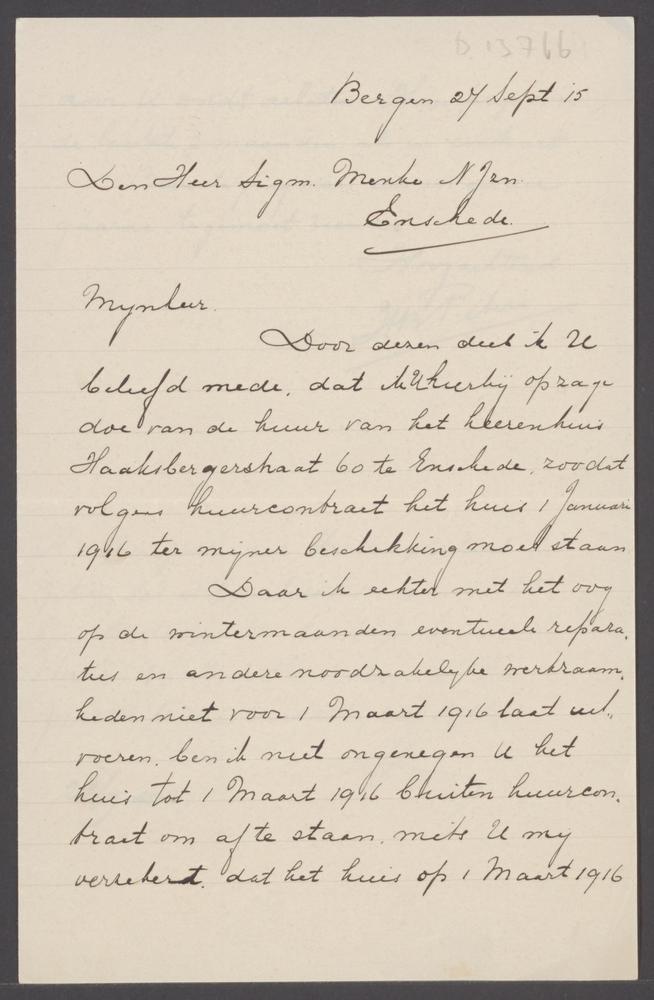 D 13766
Bergen 27 Sept 15
Den Heer Sigm. Menko N Jzn.
Enschede.
Mynheer.
Door dezen deel ik U
beleefd mede, dat ik U hierbij opzage
doe van de huur van het heerenhuis
Haaksbergerstraat 60 te Enschede, zoodat
volgens huurcontract het huis 1 Januari
1916 ter mijner beschikking moet staan
Daar ik echter met het oog
op de wintermaanden eventueele repara,
ties en andere noodzakelyke werkzaam,
heden niet voor 1 Maart 1916 laat uit,
voeren, ben ik niet ongenegen U het
huis tot 1 Maart 1916 buiten huurcon,
tract om af te staan, mits U my
verzekert, dat het huis op 1 Maart 1916